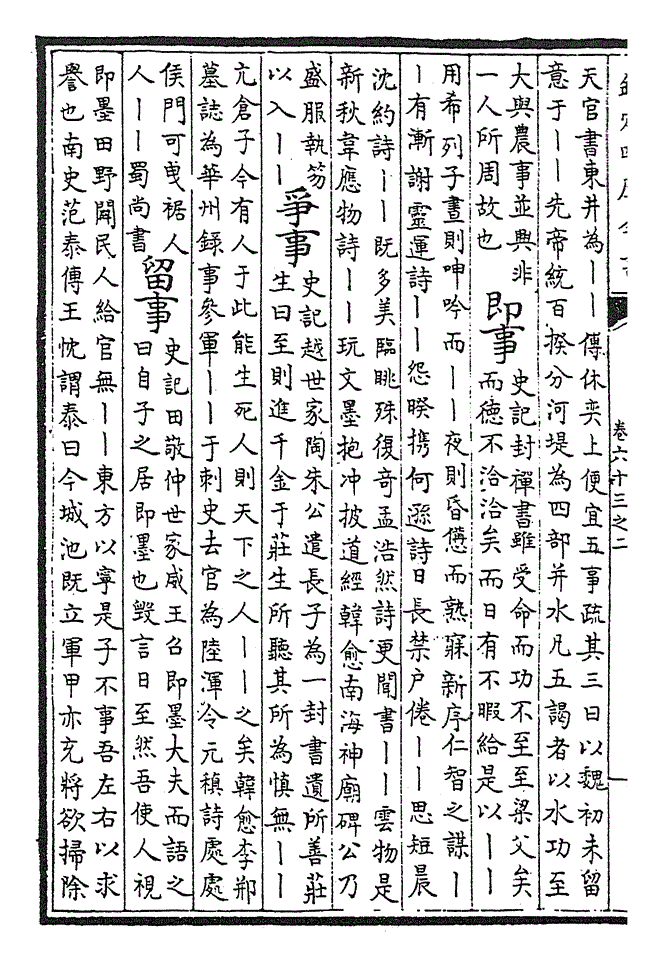 卷六十三之二
天官書東井為丨丨傳休奕上便宜五事疏其三曰以魏初未留
意于丨丨先帝統百揆分河堤為四部并水凡五謁者以水功至
大與農事並興非
一人所周故也
即事
史記封禪書雖受命而功不至至梁父矣
而德不洽洽矣而日有不暇給是以丨丨
用希列子晝則呻吟而丨丨夜則昏憊而熟寐新序仁智之謀丨
丨有漸謝靈運詩丨丨怨睽攜何遜詩日長禁户倦丨丨思短晨
沈約詩丨丨既多美臨眺殊復奇孟浩然詩更聞書丨丨雲物是
新秋韋應物詩丨丨玩文墨抱冲披道經韓愈南海神廟碑公乃
盛服執笏
以入丨丨
爭事
史記越世家陶朱公遣長子為一封書遺所善莊
生曰至則進千金于莊生所聽其所為慎無丨丨
亢倉子今有人于此能生死人則天下之人丨丨之矣韓愈李邢
墓誌為華州錄事參軍丨丨于刺史去官為陸渾令元稹詩處處
侯門可曳裾人
人丨丨蜀尚書
留事
史記田敬仲世家威王召即墨大夫而語之
曰自子之居即墨也毀言日至然吾使人視
即墨田野闢民人給官無丨丨東方以寧是子不事吾左右以求
譽也南史范泰傳王忱謂泰曰今城池既立軍甲亦充將欲掃除